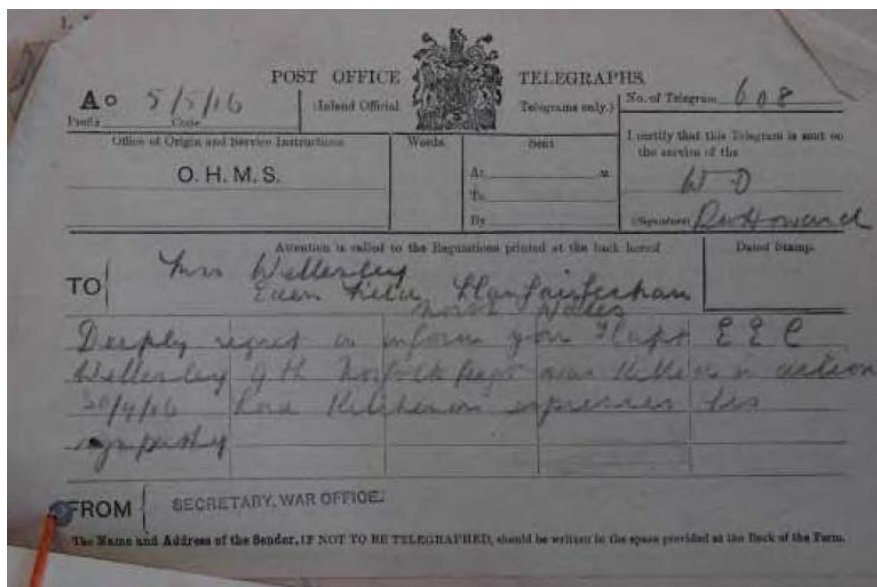 POST OFFICE TELEGRAPHS.
A 5/5/16 (Inland Official Telegrams only.) No. of Telegram 608
Prefix Code
Office of Origin and Service Instructions. Words. Sent
I certify that this Telegram is sent on
the service of the
O.H.M.S.
At M.
W O
To
By
(Signature) Howard
Attention is called to the Regulations printed at the back hereof
Dated Stamp.
TO Mrs Wellesley
Llanfairfechan
North Wales
Deeply regret to inform you Capt E E C
Wellesley 9th Norfolk Regt was killed in action
30/4/16 Lord Kitchener expresses his
sympathy
FROM SECRETARY, WAR OFFICE.
The Name and Address of the Sender, IF NOT TO BE TELEGRAPHED, should be written in the space provided at the Back of the Form.